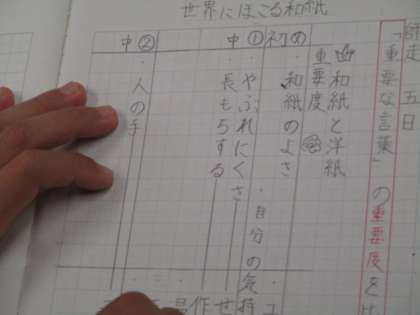 世界にほこる和紙
師走 五日
「重要な言葉」の重要度を
和紙と洋紙
重要度
初め
・和紙のよさ
中①
・やぶれにくさ
・長もちする
・自分の気持
中②
・人の手
作
せ